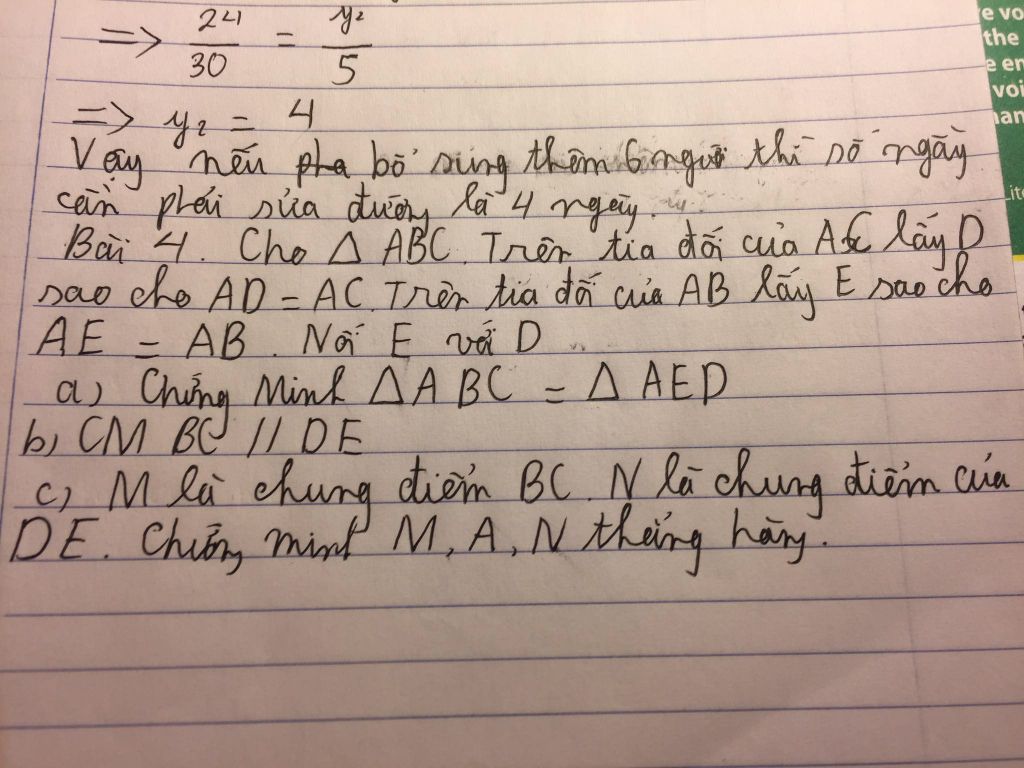 => 24/30 = y₂/5
=> y₂ = 4
Vậy nếu pha bổ sung thêm 6 người thì số ngày
cần phải sửa đường là 4 ngày.
Bài 4. Cho △ ABC. Trên tia đối của AC lấy D
sao cho AD = AC. Trên tia đối của AB lấy E sao cho
AE = AB. Nối E với D
a) Chứng Minh △ABC = △AED
b) CM BC // DE
c) M là chung điểm BC. N là chung điểm của
DE. Chứng minh M, A, N thẳng hàng.
e vo
the
e en
voi
Lite